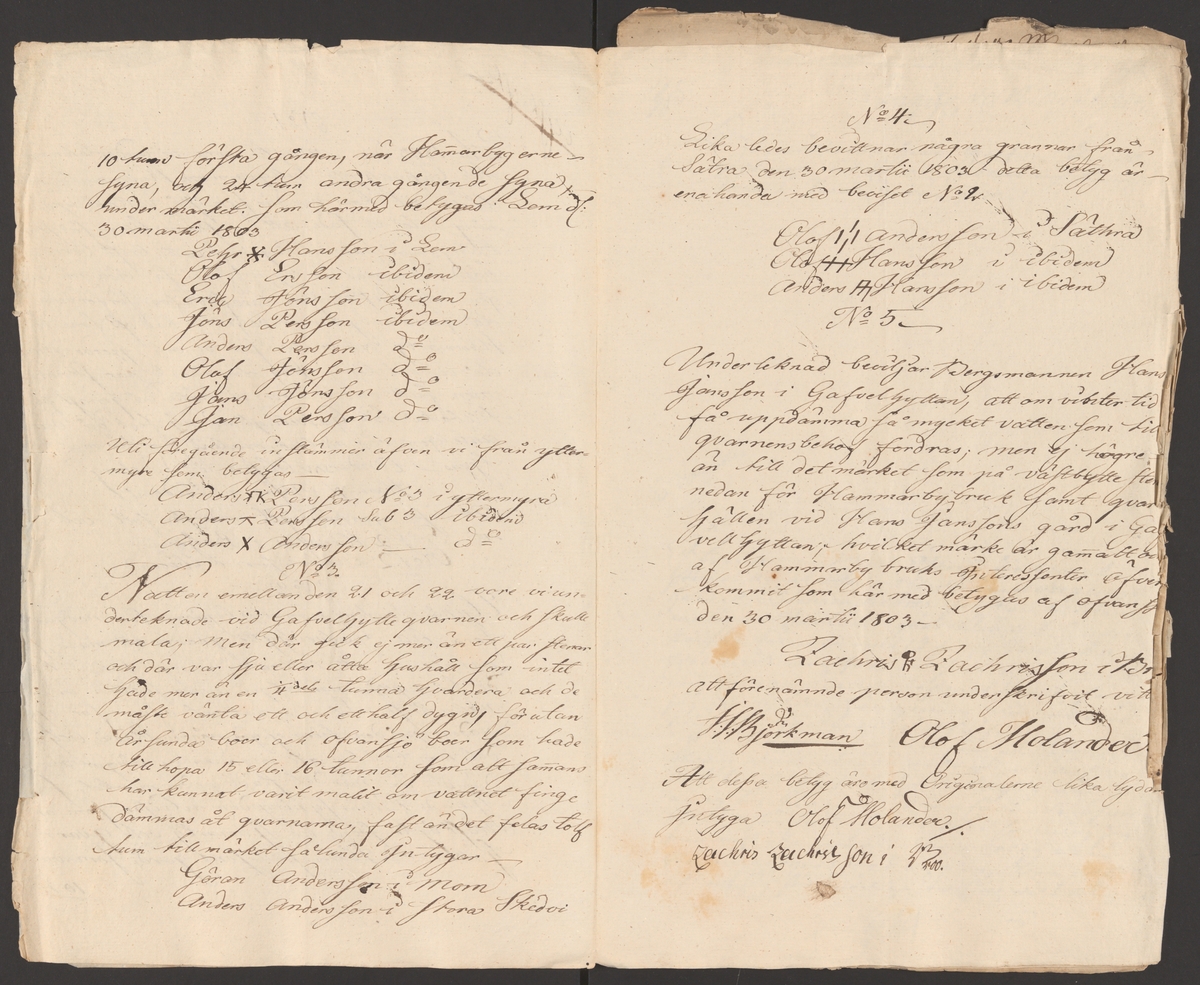 10 tum första gången, när Hammarbygerne
syna, och 24 tum andra gången de syna
under märket. som härmed betygas. Lem d:
30 martii 1803
Pehr X Hansson i Lem
Olof Ersson ibidem
Eric Jönsson ibidem
Jöns Persson ibidem
Anders Persson Do
Olof Jönsson Do
Jöns Jönsson Do
Jan Persson Do
Uti föregående instämmer äfven vi från ytter
myra som betygas
Anders Persson No 3 i yttermyra
Anders Persson Sub 3 i ibidem
Anders X Andersson Do
No 3.
Natten emellan den 21 och 22 vore vi un-
derteknade vid Gafvelhytte qvarnen och skulle
mala; Men där fick ej mer än ett par stenar
och där var sju eller åtta hushåll som intet
hade mer än en 4dels tunna hvardera och de
måste vänta ett och ett half dygn, förutan
årsunda boer och ofvansjö boer som hade
tillhopa 15 eller 16 tunnor som alt sammans
har kunnat varit malit om vattnet finge
dämmas åt qvarnarna, fast än det felas tolf
tum till märket sålunda intygar
Göran Andersson i Morn
Anders Andersson i stora Skedvi
No 4:
Lika ledes bevittnar några grannar från
Sätra den 30 martii 1803 detta betyg är
enahanda med beviset No 2.
Olof Andersson i Säthra
Olof Hansson i ibidem
Anders Hansson i ibidem
No 5
Underteknad beviljar Bergsmannen Hans
Jansson i Gafvelhyttan, att om vinter tid
få uppdämma så myket vatten som till
qvarnens behof fordras; men ej högre
än till det märket som på västbytte sten
nedan för Hammarby bruk samt qvarn
hällen vid Hans Janssons gård i Ga
velhyttan; hvilket märke är gamalt och
af Hammarby bruks Interessenter öfver
kommit som här med betygas af ofvansjö
den 30 martii 1803
Zachris Zachrisson i Br
att förenämnde person underskrifvit vit
Björkman Olof Molander
Att dessa betyg äro med Originalerne lika lydan
intyga Olof Molander.
Zachris Zachrisson i